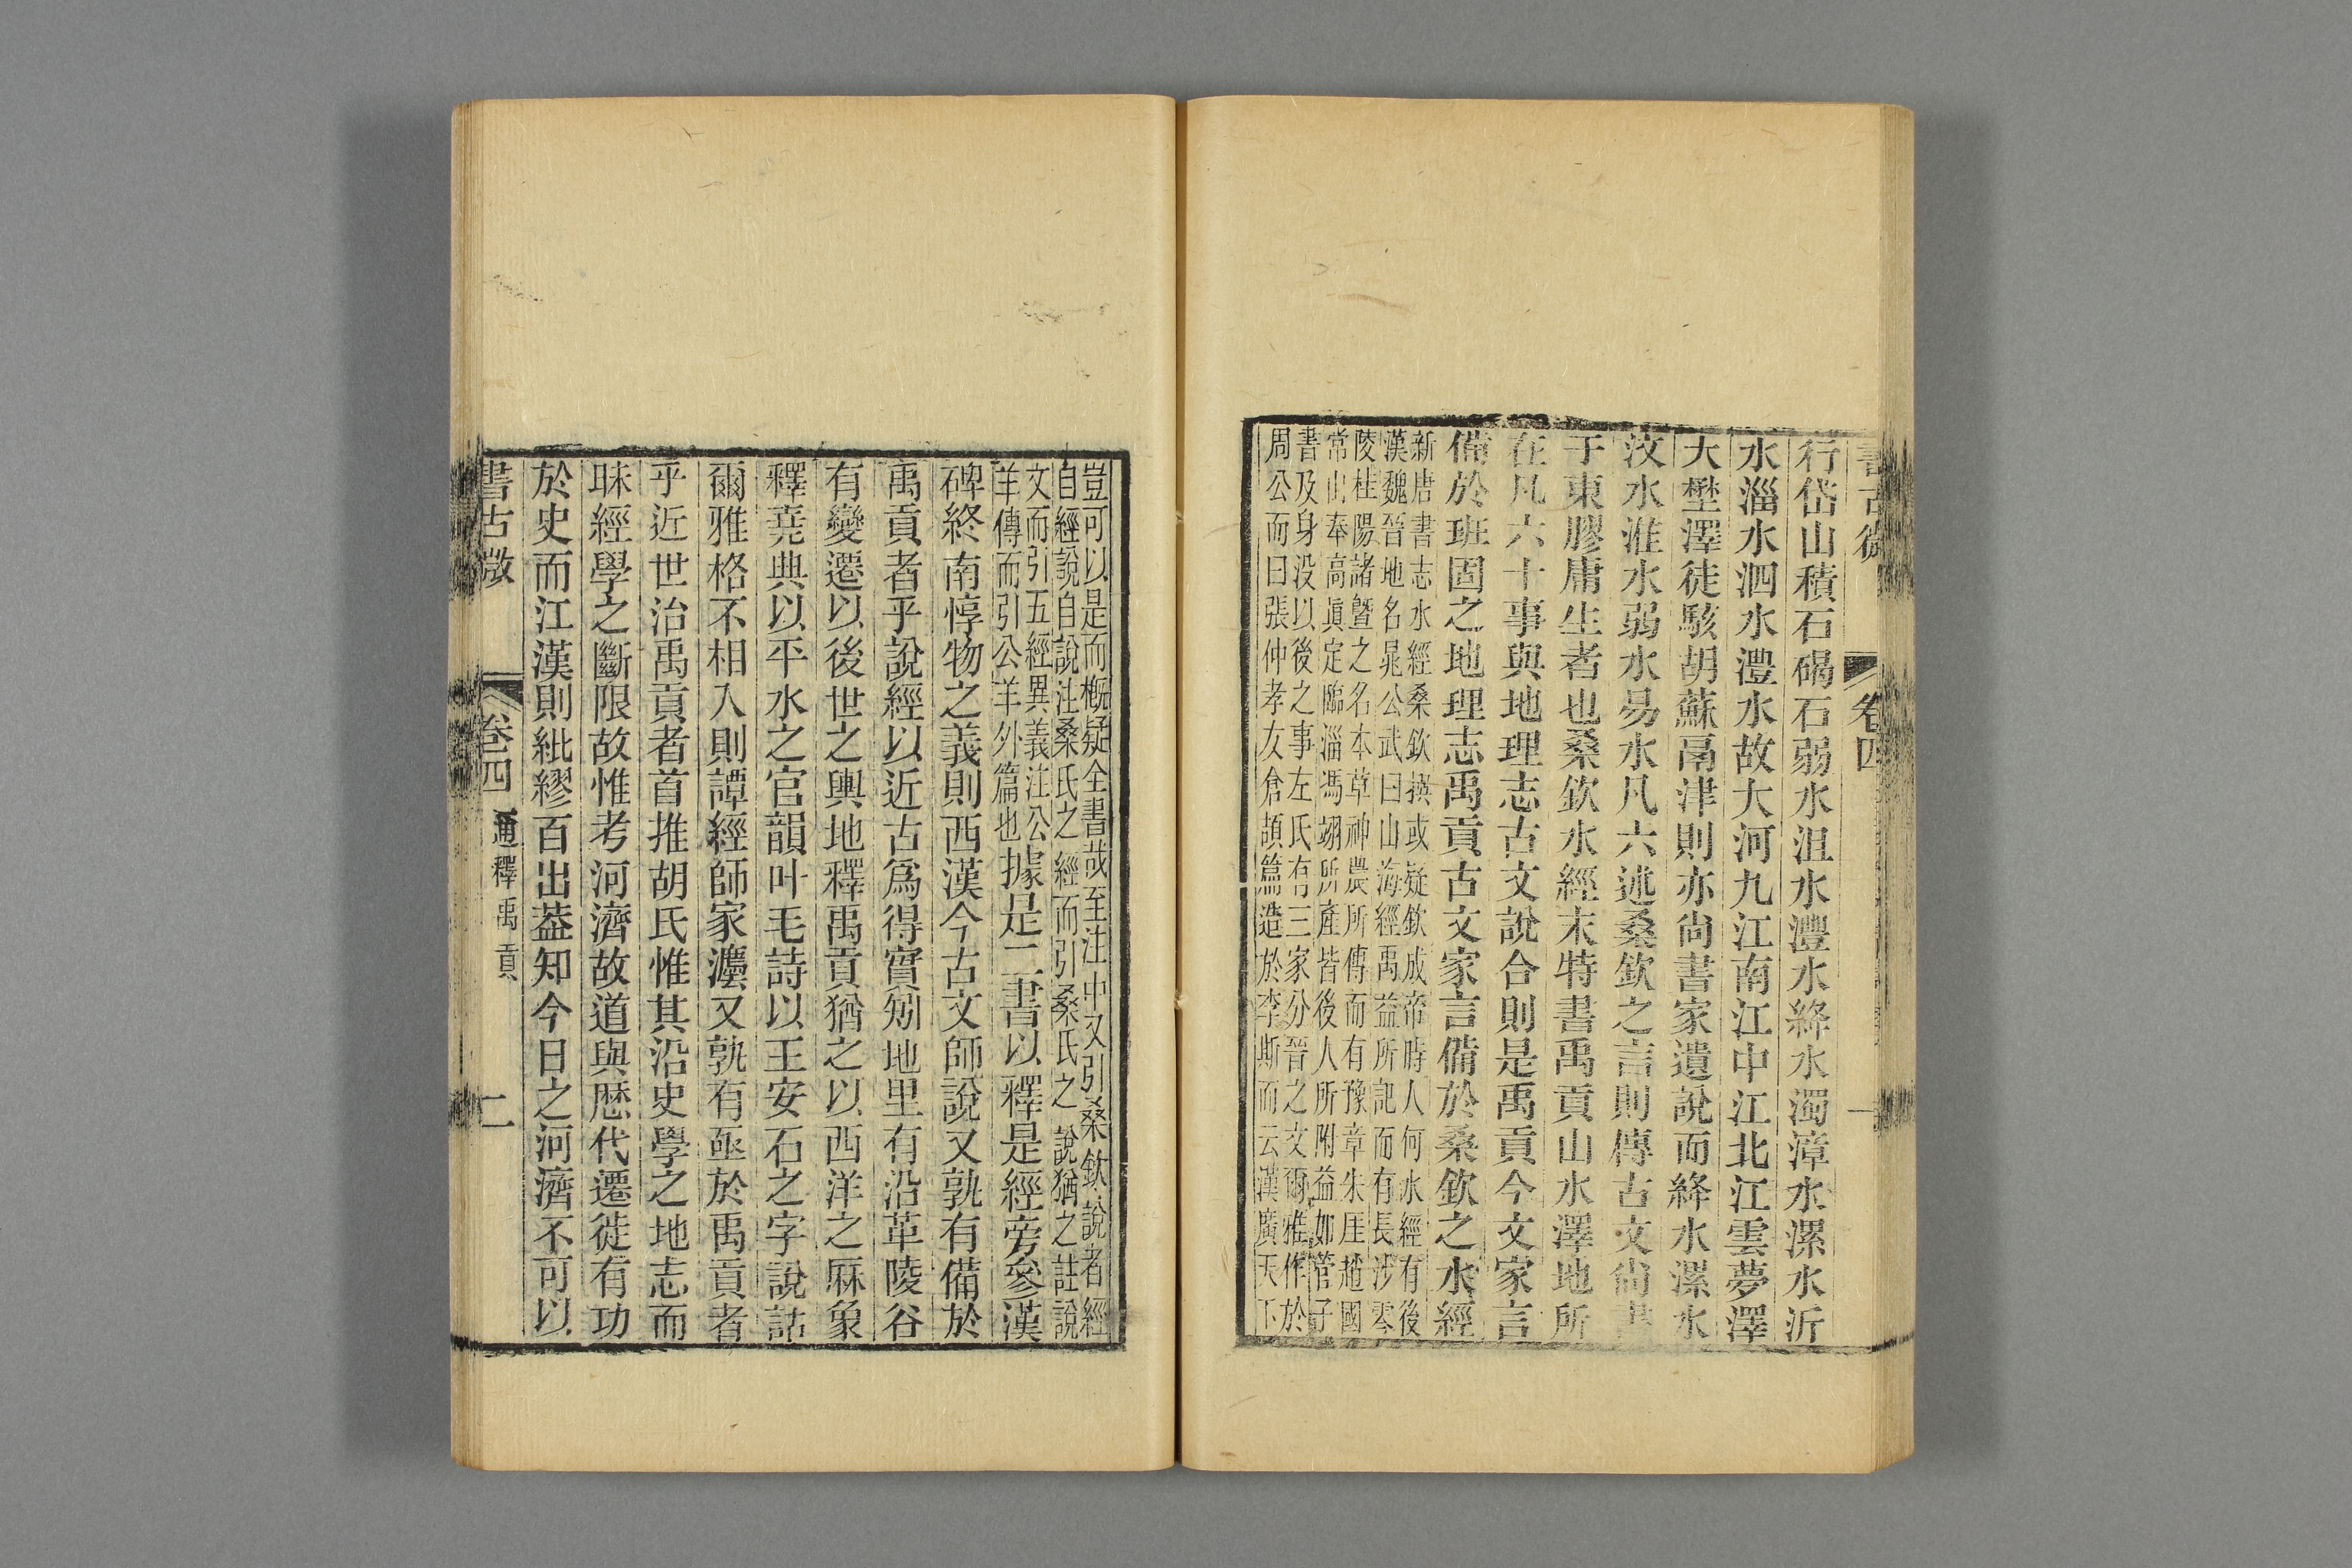 書古微
卷四
一
行岱山積石碣石弱水沮水灃水絳水濁漳水漯水沂
水淄水泗水澧水故大河九江南江中江北江雲夢澤
大壄澤徒駭胡蘇鬲津則亦尚書家遺說而絳水漯水
汶水淮水弱水易水凡六述桑欽之言則傳古文尚書
于東膠庸生者也桑欽水經末特書禹貢山水澤地所
在凡六十事與地理志古文說合則是禹貢今文家言
備於班固之地理志禹貢古文家言備於桑欽之水經
新唐書志水經桑欽撰或疑欽成帝時人何水經有後
漢魏晉地名晁公武曰山海經禹益所記而有長沙零
陵桂陽諸曁之名本草神農所傳而有豫章朱厓趙國
常山奉高眞定臨淄馮翊所產皆後人所附益如管子
書及身没以後之事左氏有三家分晉之文爾雅作於
周公而曰張仲孝友倉頡篇造於李斯而云漢廣天下
豈可以是而槪疑全書哉至注中又引桑欽說者經
自經說自說注桑氏之經而引桑氏之說猶之註說
文而引五經異義注公
羊傳而引公羊外篇也據是二書以釋是經旁參漢
碑終南惇物之義則西漢今古文師說又孰有備於
禹貢者乎說經以近古爲得實矧地里有沿革陵谷
有變遷以後世之輿地釋禹貢猶之以西洋之厤象
釋堯典以平水之官韻叶毛詩以王安石之字說詁
爾雅格不相入則譚經師家灋又孰有亟於禹貢者
乎近世治禹貢者首推胡氏惟其沿史學之地志而
昧經學之斷限故惟考河濟故道與歷代遷徙有功
於史而江漢則紕繆百出葢知今日之河濟不可以
書古微
卷四
通釋禹貢
二